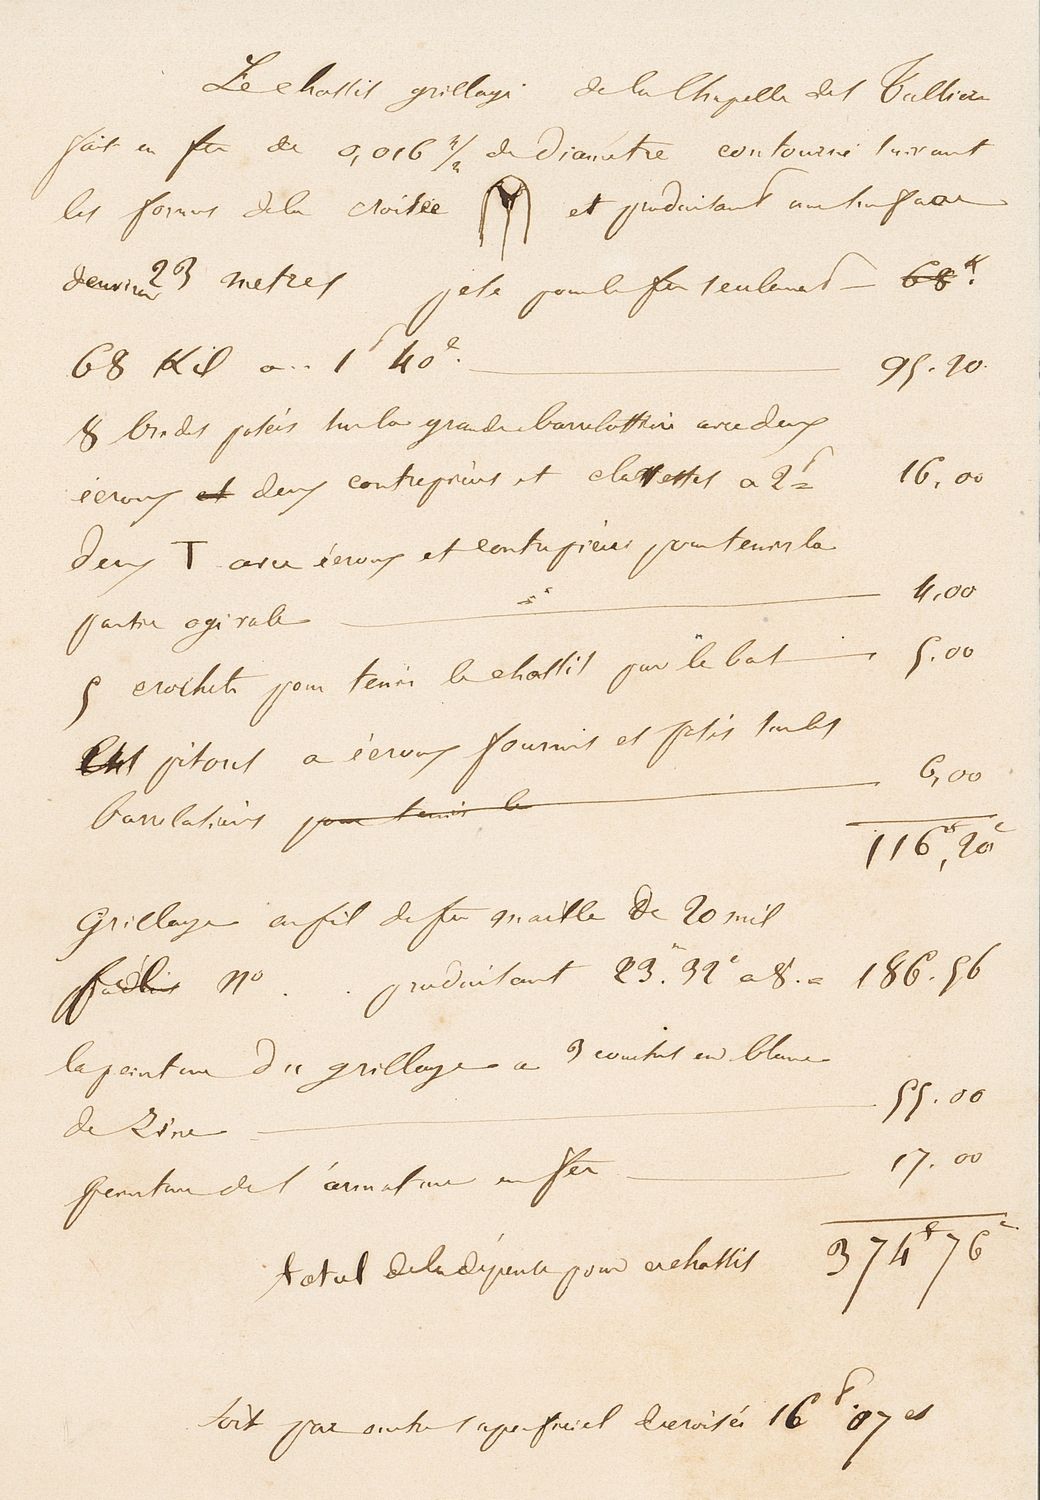 Le chassis grillagé de la Chapelle des
fait en fer de 0,016 m/m de diametre contourné suivant
les formes de la croisée et produisant une surface
d'environ 23 metres pese pour le fer seulement 68 K.
68 Kil a 1f 40c. 95.20
8 brides posées sur la grande barrelottiere avec deux
écroux et deux contrepieces et clavettes a 2f = 16,00
deux T avec écroux et contrepieces pour tenir la
partie ogivale 4,00
5 crochets pour tenir le chassis par le bas 5.00
pitons a écroux fournis et posés sur les
barrelotieres pour tenir le 6,00
116f,20c
Grillage en fil de fer maille de 20 mil
no . . produisant 23.m 32c a 8. = 186.56
la peinture du grillage a 3 couches en blanc
de Zinc 55.00
peinture de l'armature en fer 17.00
total de la dépense pour ce chassis 374f 76c
soit par metre superficiel de croisée 16f.07 cs